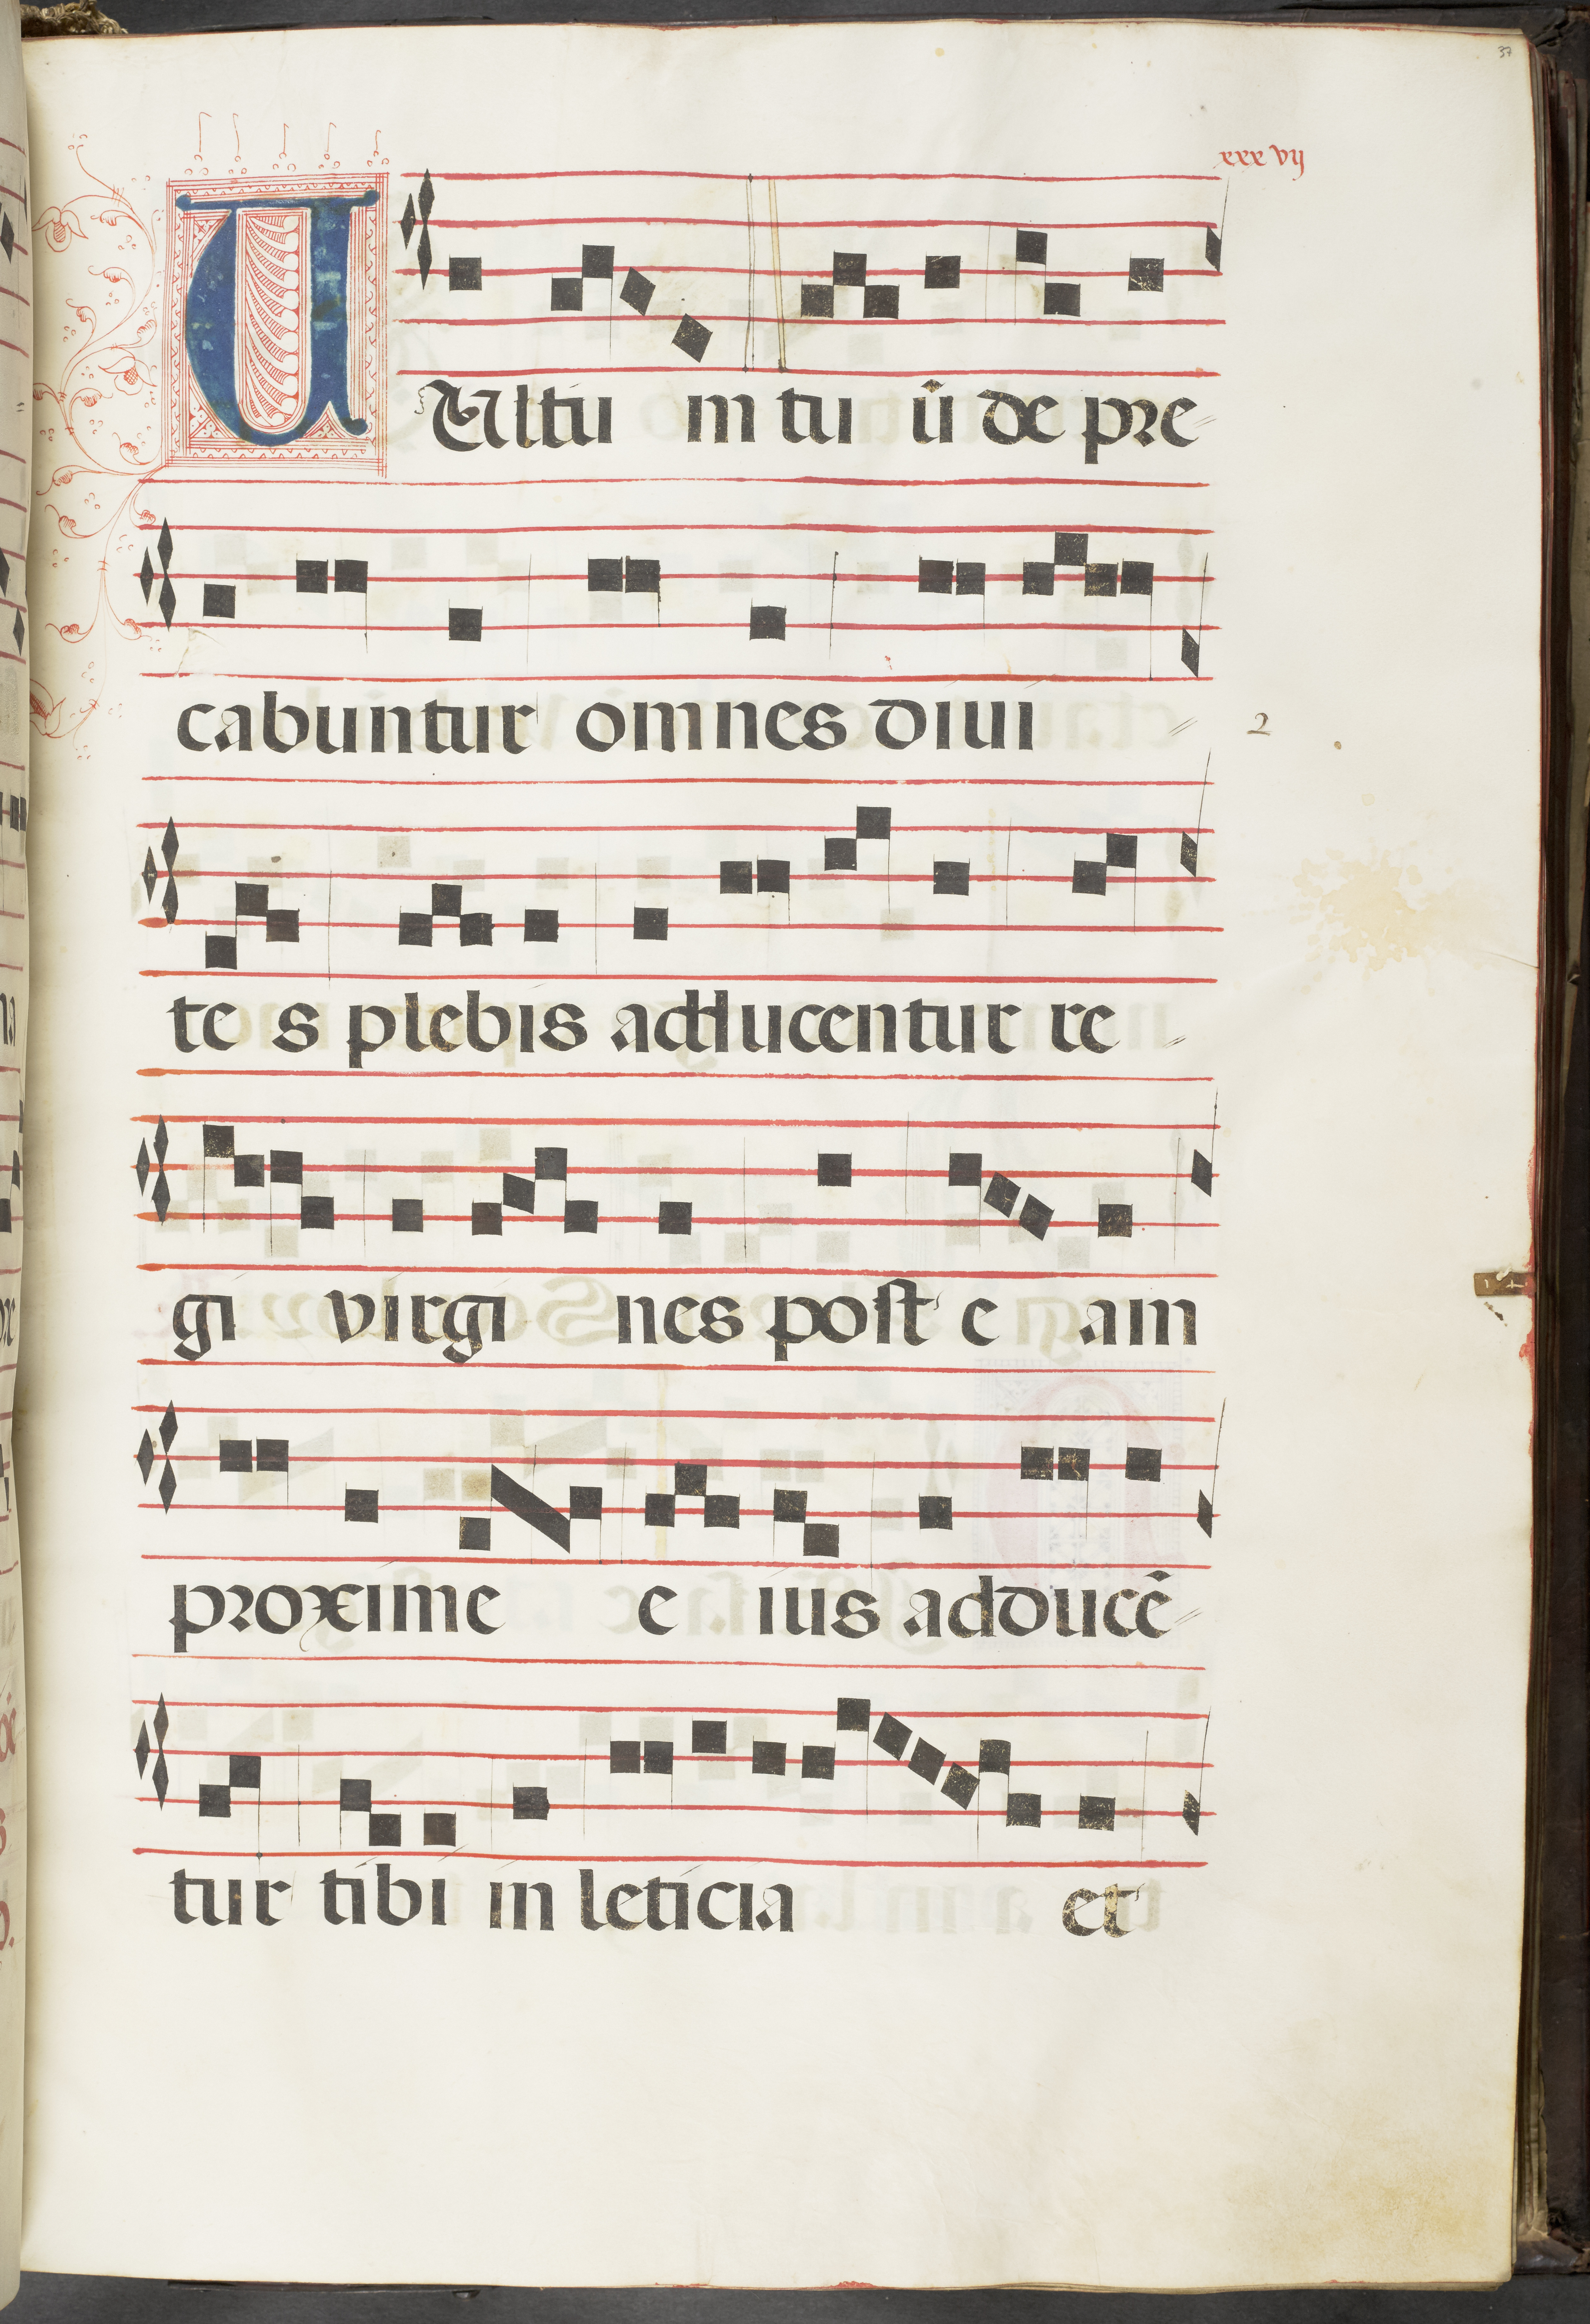 37
xxx vij
UUltu m tu ū de pre
cabuntur omnes diui
2
te s plebis adducentur re
gi virgi nes post e am
proxime e ius adducē
tur tibi in leticia et